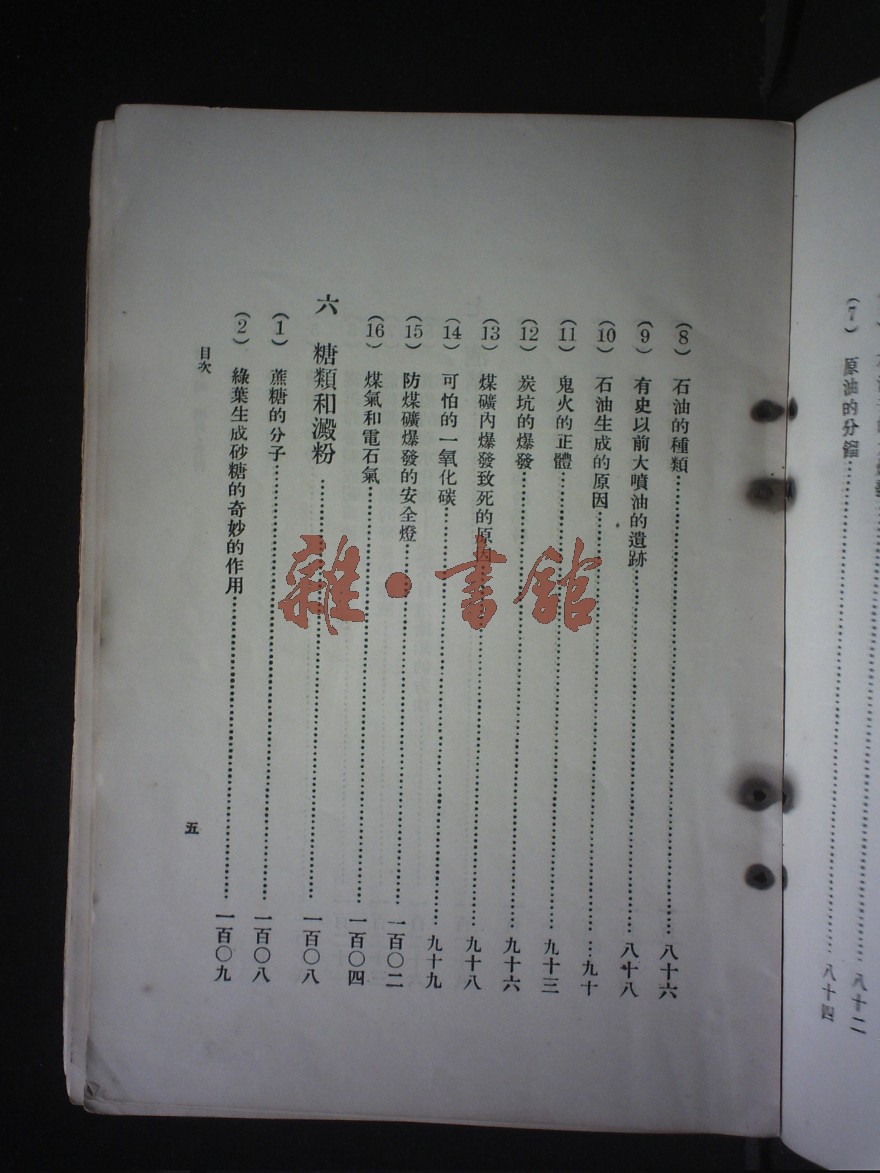 (7) 原油的分餾……八十四
(8) 石油的種類……八十六
(9) 有史以前大噴油的遺跡……八十八
(10) 石油生成的原因……九十
(11) 鬼火的正體……九十三
(12) 炭坑的爆發……九十六
(13) 煤礦內爆發致死的原因……九十八
(14) 可怕的一氧化碳……九十九
(15) 防煤礦爆發的安全燈……一百〇二
(16) 煤氣和電石氣……一百〇四
六 糖類和澱粉……一百〇八
(1) 蔗糖的分子……一百〇八
(2) 綠葉生成砂糖的奇妙的作用……一百〇九
目次
五
雜·書館